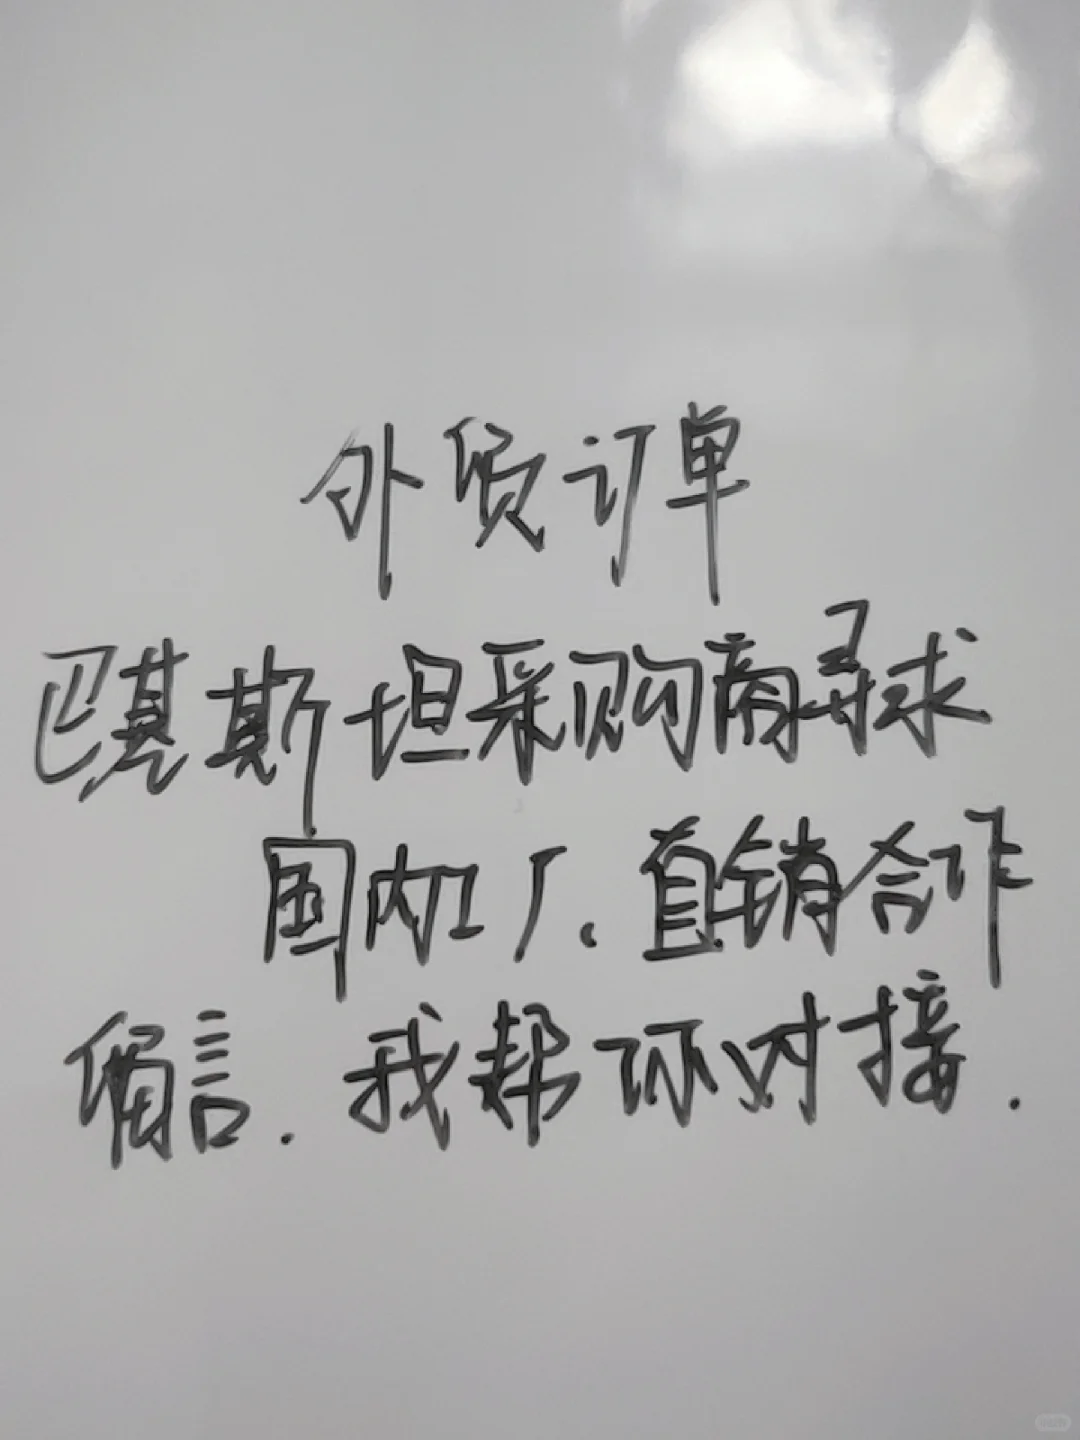 外贸订单
巴基斯坦采购商寻求
国内工厂、直销合作
留言.我帮你对接.